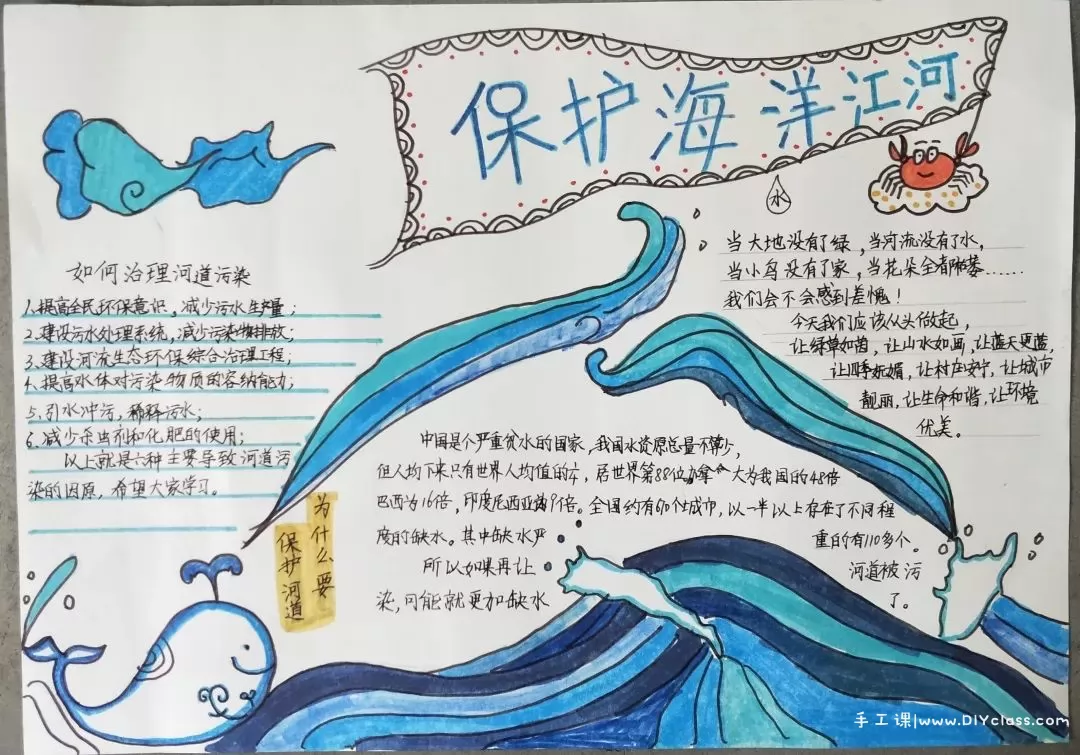 保护海洋江河
水
如何治理河道污染
1.提高全民环保意识，减少污水生产量；
2.建设污水处理系统，减少污染物排放；
3.建设河流生态环保综合治理工程；
4.提高水体对污染物质的容纳能力；
5.引水冲污，稀释污水；
6.减少杀虫剂和化肥的使用；
以上就是六种主要导致河道污
染的因原，希望大家学习。
当大地没有了绿，当河流没有了水，
当小鸟没有了家，当花朵全都败落……
我们会不会感到羞愧！
今天我们应该从头做起，
让绿草如茵，让山水如画，让蓝天更蓝，
让四季妩媚，让村庄安宁，让城市
靓丽，让生命和谐，让环境
优美。
为什么要
保护河道
中国是个严重贫水的国家，我国水资原总量不少，
但人均下来只有世界人均值的，居世界第88位，拿大为我国的48倍
巴西为16倍，印度尼西亚为9倍。全国约有610个城市，以一半以上存在了不同程
度的缺水。其中缺水严
重的有110多个。
所以如果再让
河道被污
染，可能就更加缺水
了。
手工课|www.DIYclass.com